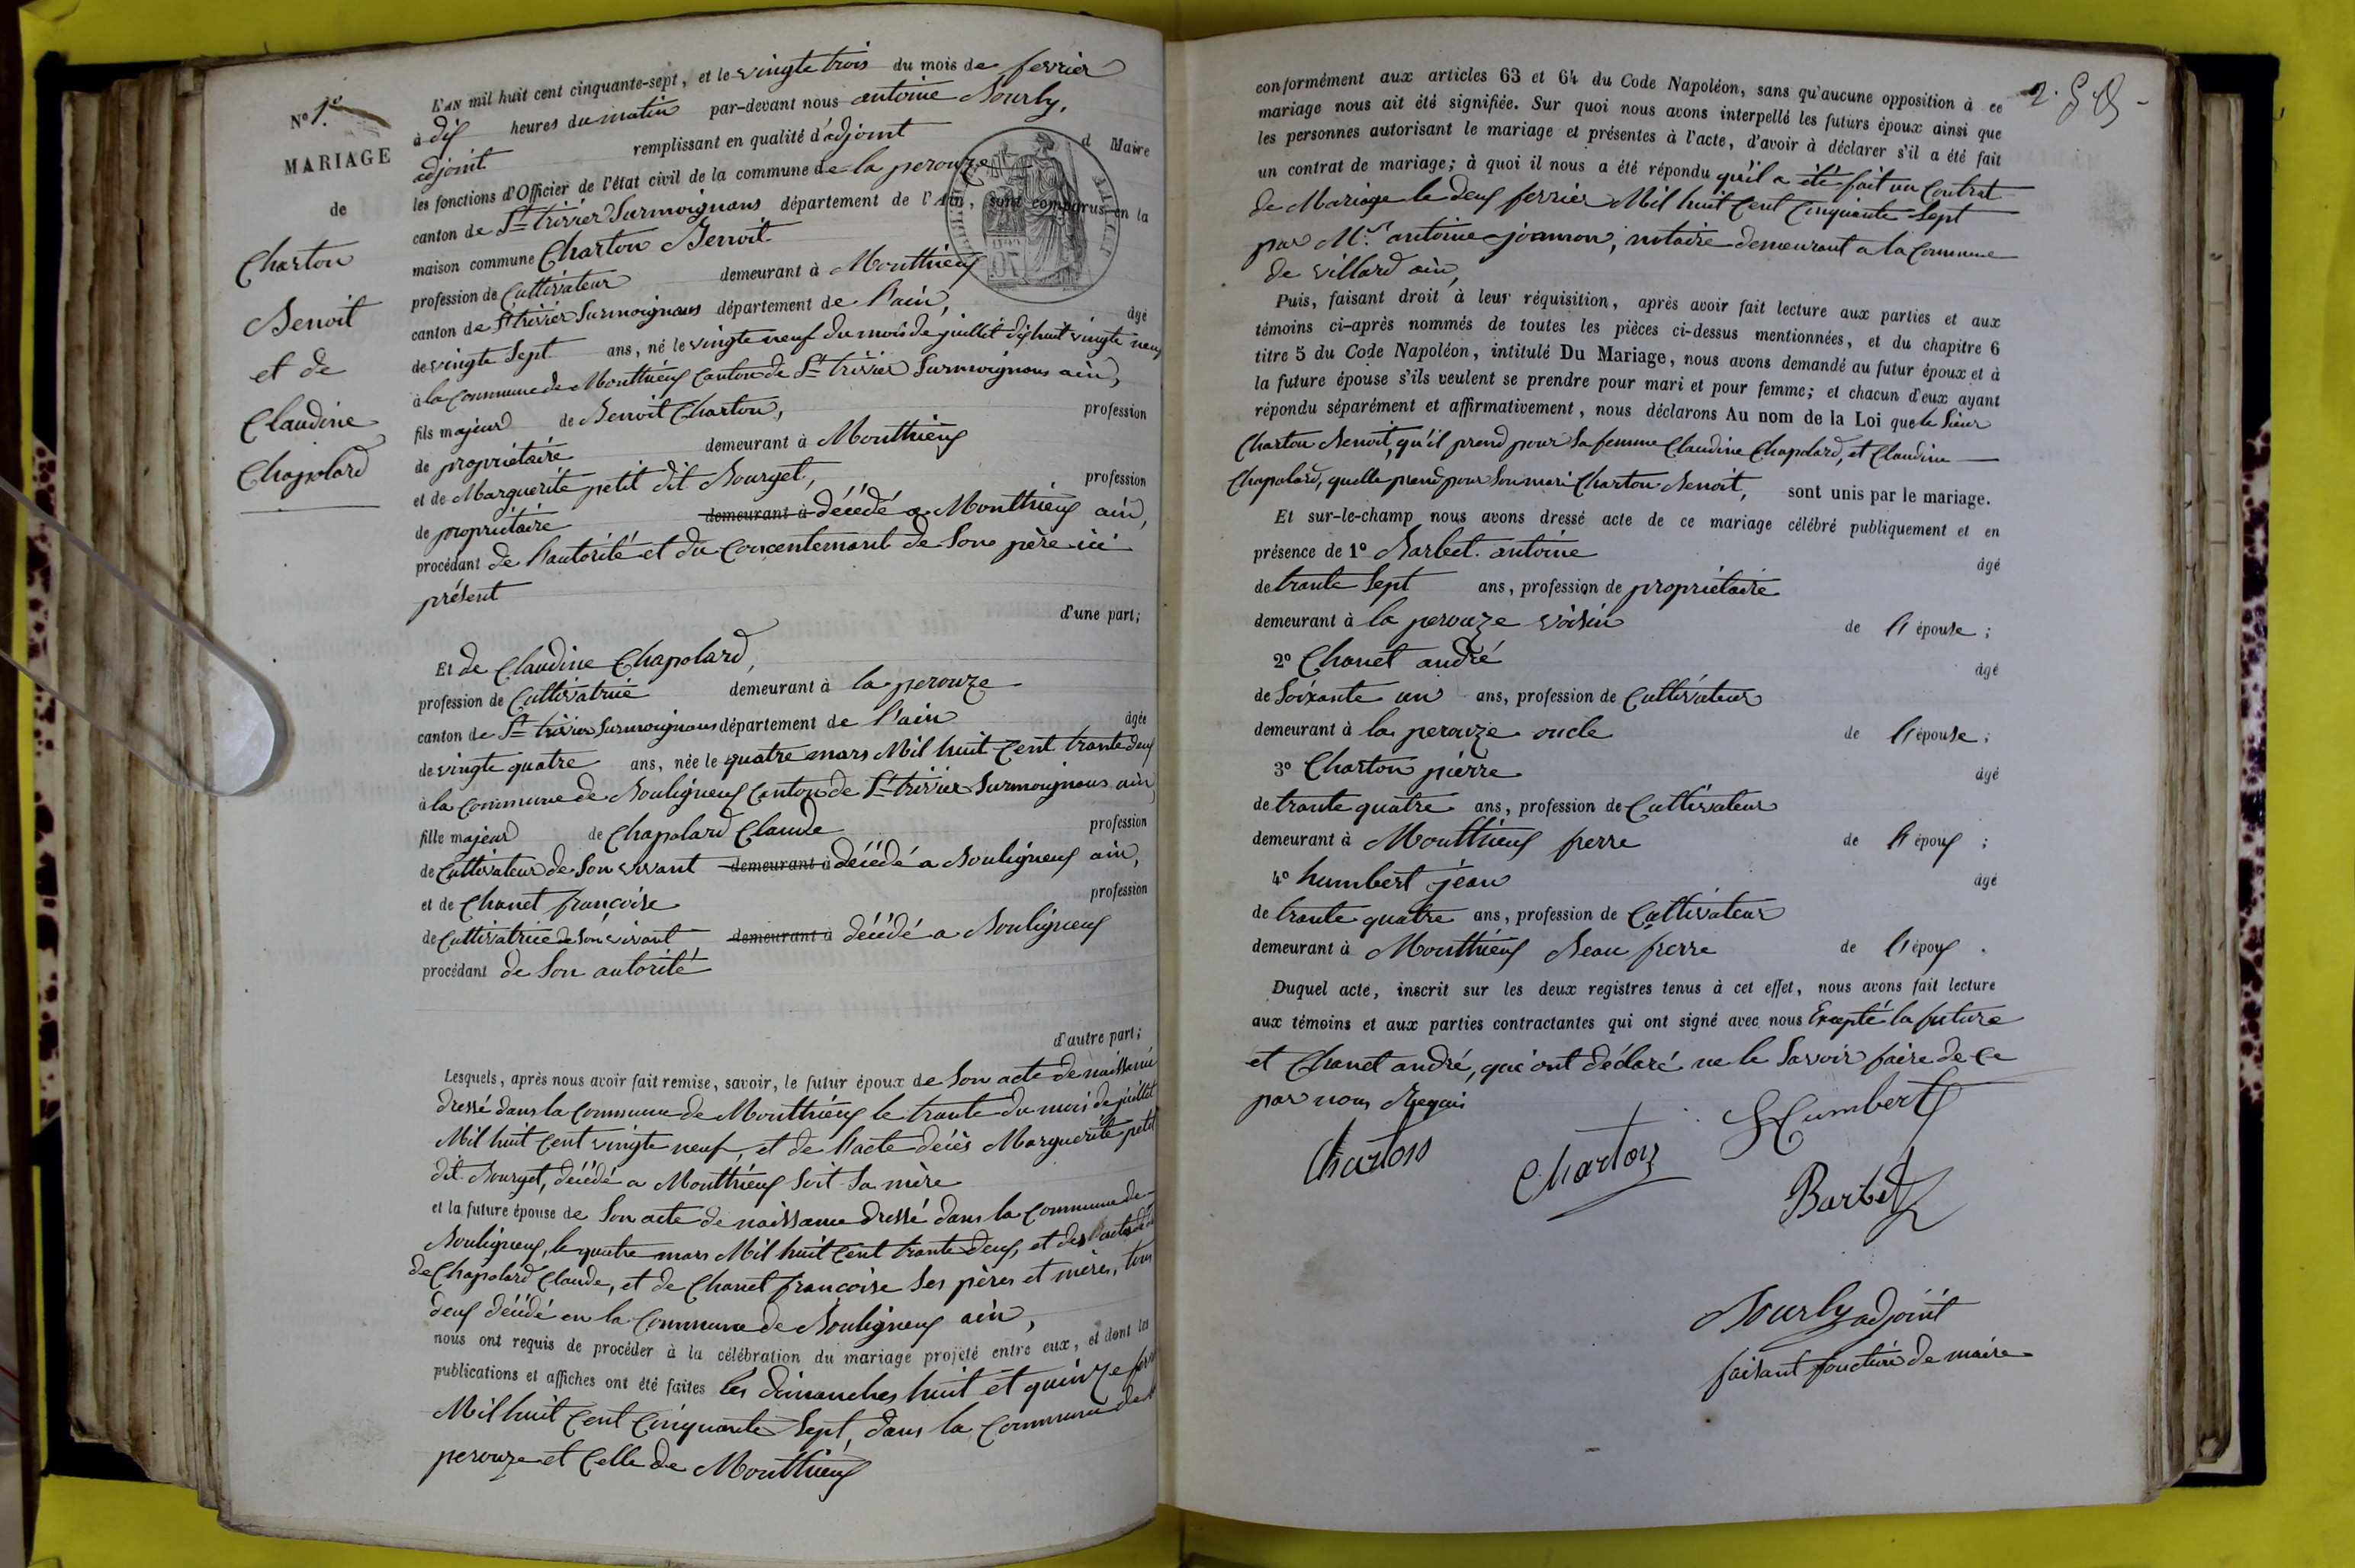 No 1er
MARIAGE
de
Charton
Benoit
et de
Claudine
Chapolard
L'AN mil huit cent cinquante-sept, et le vingte trois du mois de fevrier
à dix heures du matin par-devant nous antoine Bourly,
adjoint remplissant en qualité d'adjoint d Maire
les fonctions d'Officier de l'état civil de la commune de la perouze
canton de St trivier Surmoignans département de l'Ain, sont comparus en la
maison commune Charton Benoit
profession de Cultivateur demeurant à Monthieux
canton de St trivier Surmoignans département de l'ain, âgé
de vingte Sept ans, né le vingte neuf du mois de juillet dix huit vingte neuf
à la Commune de Monthieux Canton de St trivier Surmoignans ain,
fils majeur de Benoit Charton, profession
de propriétaire demeurant à Monthieux
et de Marguerite petit dit Bourget, profession
de propriétaire demeurant à décédé a Monthieux ain,
procédant de l'autorité et du Concentemant de Son père ici
présent
d'une part;
Et de Claudine Chapolard,
profession de Cultivatrice demeurant à la perouze
canton de St trivier Surmoignans département de l'ain âgée
de vingte quatre ans, née le quatre mars Mil huit Cent trante deux
à la Commune de Bouligneux Canton de St trivier Surmoignans ain
fille majeur de Chapolard Claude profession
de Cultivateur de Son vivant demeurant à décédé a Bouligneux ain,
et de Chanet françoise profession
de Cultivatrice de Son vivant demeurant à décédé a Bouligneux
procédant de Son autorité
d'autre part;
Lesquels, après nous avoir fait remise, savoir, le futur époux de Son acte de naissance
dressé dans la Commune de Monthieux le trante du mois de juillet
Mil huit Cent vingte neuf, et de l'acte décès Marguerite petit
dit Bourget, décédé a Monthieux Soit Sa mère
et la future épouse de Son acte de naissance dressé dans la Commune de
Bouligneux, le quatre mars Mil huit Cent trante deux, et des l'acte décé
de Chapolard Claude, et de Chanet françoise Ses pères et mères, tous
deux décédé en la Commune de Bouligneux ain,
nous ont requis de procéder à la célébration du mariage projeté entre eux, et dont les
publications et affiches ont été faites les dimanches huit et quinze
Mil huit Cent Cinquante Sept, dans la Commune de
perouze et Celle de Monthieux
conformément aux articles 63 et 64 du Code Napoléon, sans qu'aucune opposition à ce
mariage nous ait été signifiée. Sur quoi nous avons interpellé les futurs époux ainsi que
les personnes autorisant le mariage et présentes à l'acte, d'avoir à déclarer s'il a été fait
un contrat de mariage; à quoi il nous a été répondu qu'il a été fait un Contrat
de Mariage le deux fevrier Mil huit Cent Cinquante Sept
par Mr antoine joannon, notaire demeurant a la Commune
de villard ain,
Puis, faisant droit à leur réquisition, après avoir fait lecture aux parties et aux
témoins ci-après nommés de toutes les pièces ci-dessus mentionnées, et du chapitre 6
titre 5 du Code Napoléon, intitulé Du Mariage, nous avons demandé au futur époux et à
la future épouse s'ils veulent se prendre pour mari et pour femme; et chacun d'eux ayant
répondu séparément et affirmativement, nous déclarons Au nom de la Loi que le Sieur
Charton Benoit, qu'il prend pour Sa femme Claudine Chapolard, et Claudine
Chapolard, quelle prend pour Son mari Charton Benoit, sont unis par le mariage.
Et sur-le-champ nous avons dressé acte de ce mariage célébré publiquement et en
présence de 1o Barbet antoine âgé
de trante Sept ans, profession de propriétaire
demeurant à la perouze voisin de l'épouse;
2o Chanet andré âgé
de Soixante un ans, profession de Cultivateur
demeurant à la perouze oncle de l'épouse;
3o Charton pierre âgé
de trante quatre ans, profession de Cultivateur
demeurant à Monthieux frerre de l'époux;
4o humbert jean âgé
de trante quatre ans, profession de Cultivateur
demeurant à Monthieux Beau frerre de l'époux.
Duquel acte, inscrit sur les deux registres tenus à cet effet, nous avons fait lecture
aux témoins et aux parties contractantes qui ont signé avec nous Excepté la future
et Chanet andré, qui ont déclaré ne le Savoir faire de Ce
par nous Requis
Charton Charton Humbert
Barbet
Bourly adjoint
faisant fonction de maire